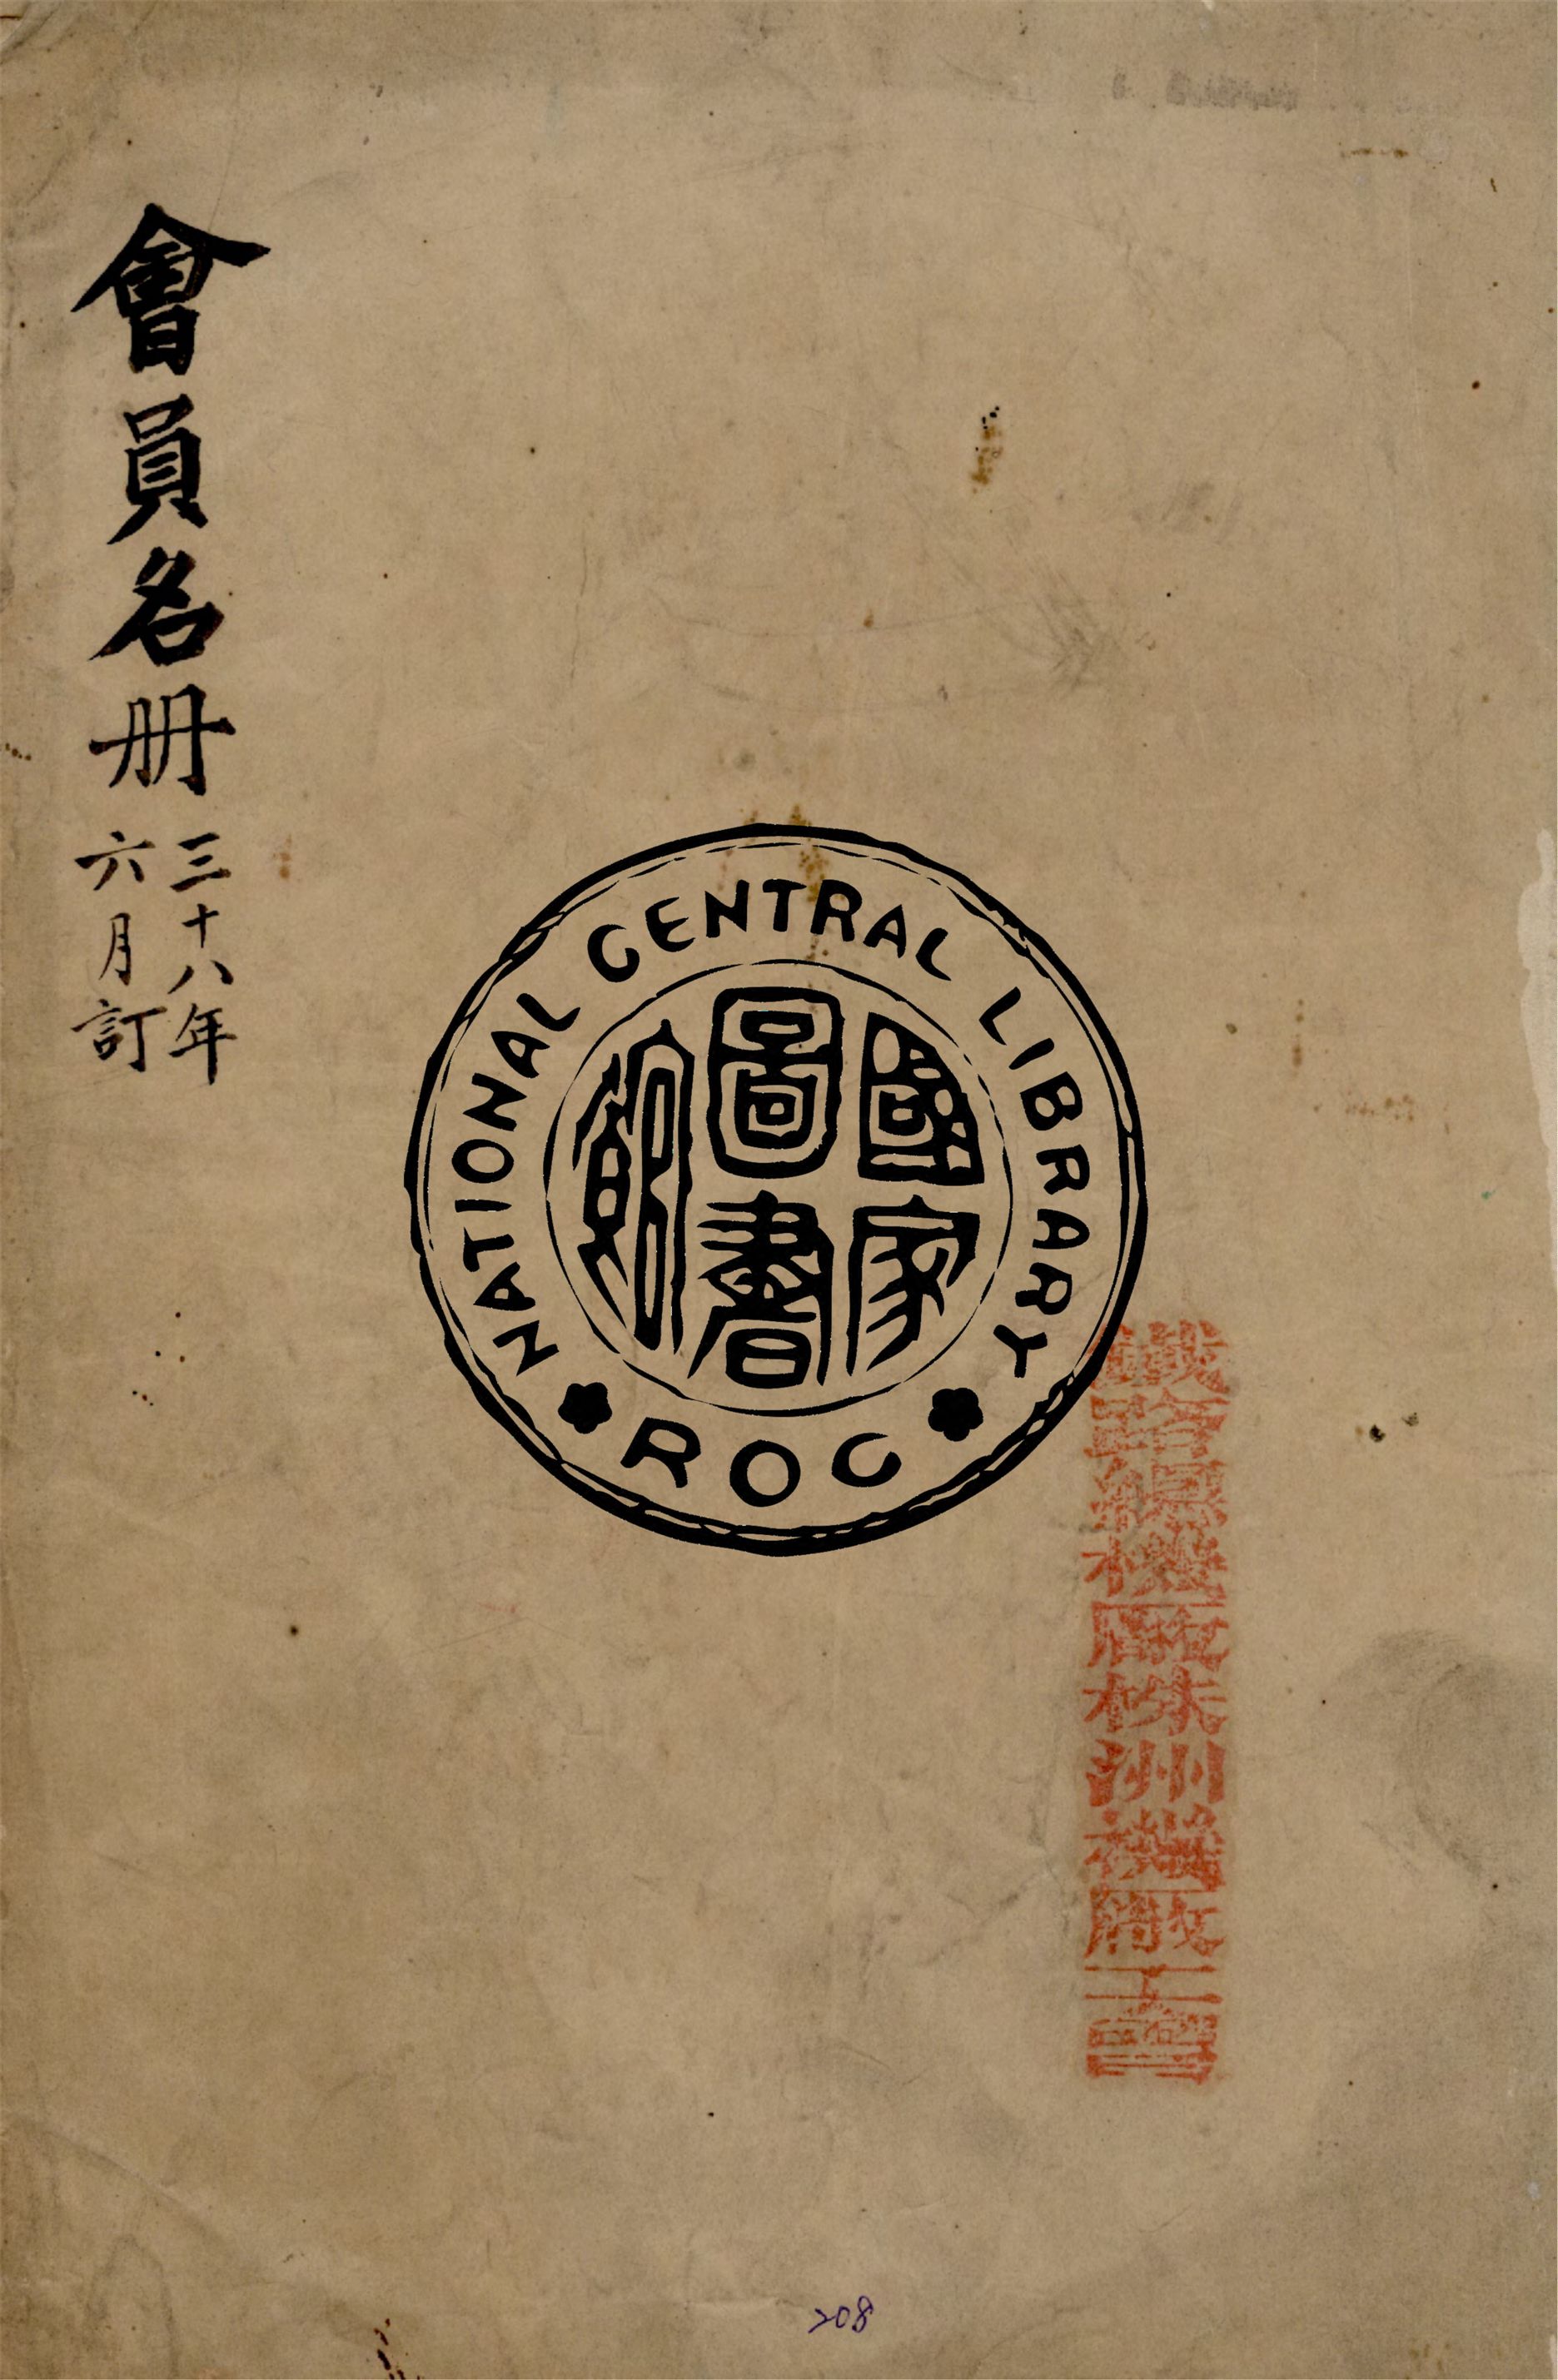 會員名冊
三十八年
六月訂
NATIONAL CENTRAL LIBRARY
國家
圖書
館
ROC
208